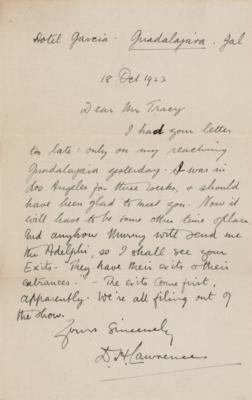 Hotel Garcia - Guadalajara. Jal
18 Oct 1923
Dear Mr Tracy
I had your letter
too late: only on my reaching
Guadalajara yesterday. I was in
Los Angeles for three weeks, & should
have been glad to meet you. Now it
will have to be some other time & place
And anyhow Murry will send me
the Adelphi, so I shall see your
Exits. They have their exits & their
entrances. - The exits come first,
apparently. We're all filing out of
the show.
Yours Sincerely
D. H. Lawrence